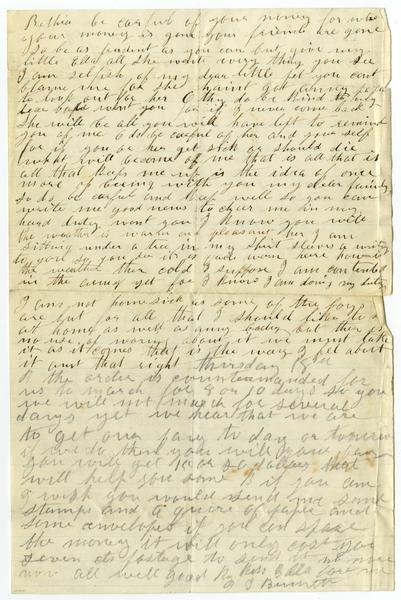 Bethia be careful of your money for when
your money is gone your friends are gone
so be as prudent as you can but give my
little Edda all she wants every thing you see
I am selfish of my dear little pet you cant
blame me for she haint got anny papa
to look out for her O they do be kind to my
dear for if I never come back
she will be all you will have left to remind
you of me O do be careful of her and your self
for if you or her get sick or should die
what will become of me that is all that is
all that keeps me up is the idea of once
more of beeing with you my dear family
so do be careful and keep well so you can
write me good news to cheer me in my
hard duty wont you I know you will
the weather is warm and pleasant here I am
sitting under a tree in my shirt sleeves a writing
to you so you see it is warm here now
the weather ther cold I suppose I am contented
in the army yet for I know I am doing my duty
I am not home sick as some of the boys
are but for all that I should like to be
at home as well as anny body but ther is
no use of worrying about it we must take
it as it comes that is the way I feel about
it aint that right thursday
the order is countermanded for
us to march for 8 or 10 days so you
we will not march for several
days yet we hear that we are
to get our pay to day or tomorrow
if we do then you will
you will get 10 or 20 dollars that
will help you some if you can
I wish you would send me some
stamps and a quire of paper and
some envelopes if you can spare
the money it will only cost you
seven cts postage to send it no more
now all well good by kiss Edda for me